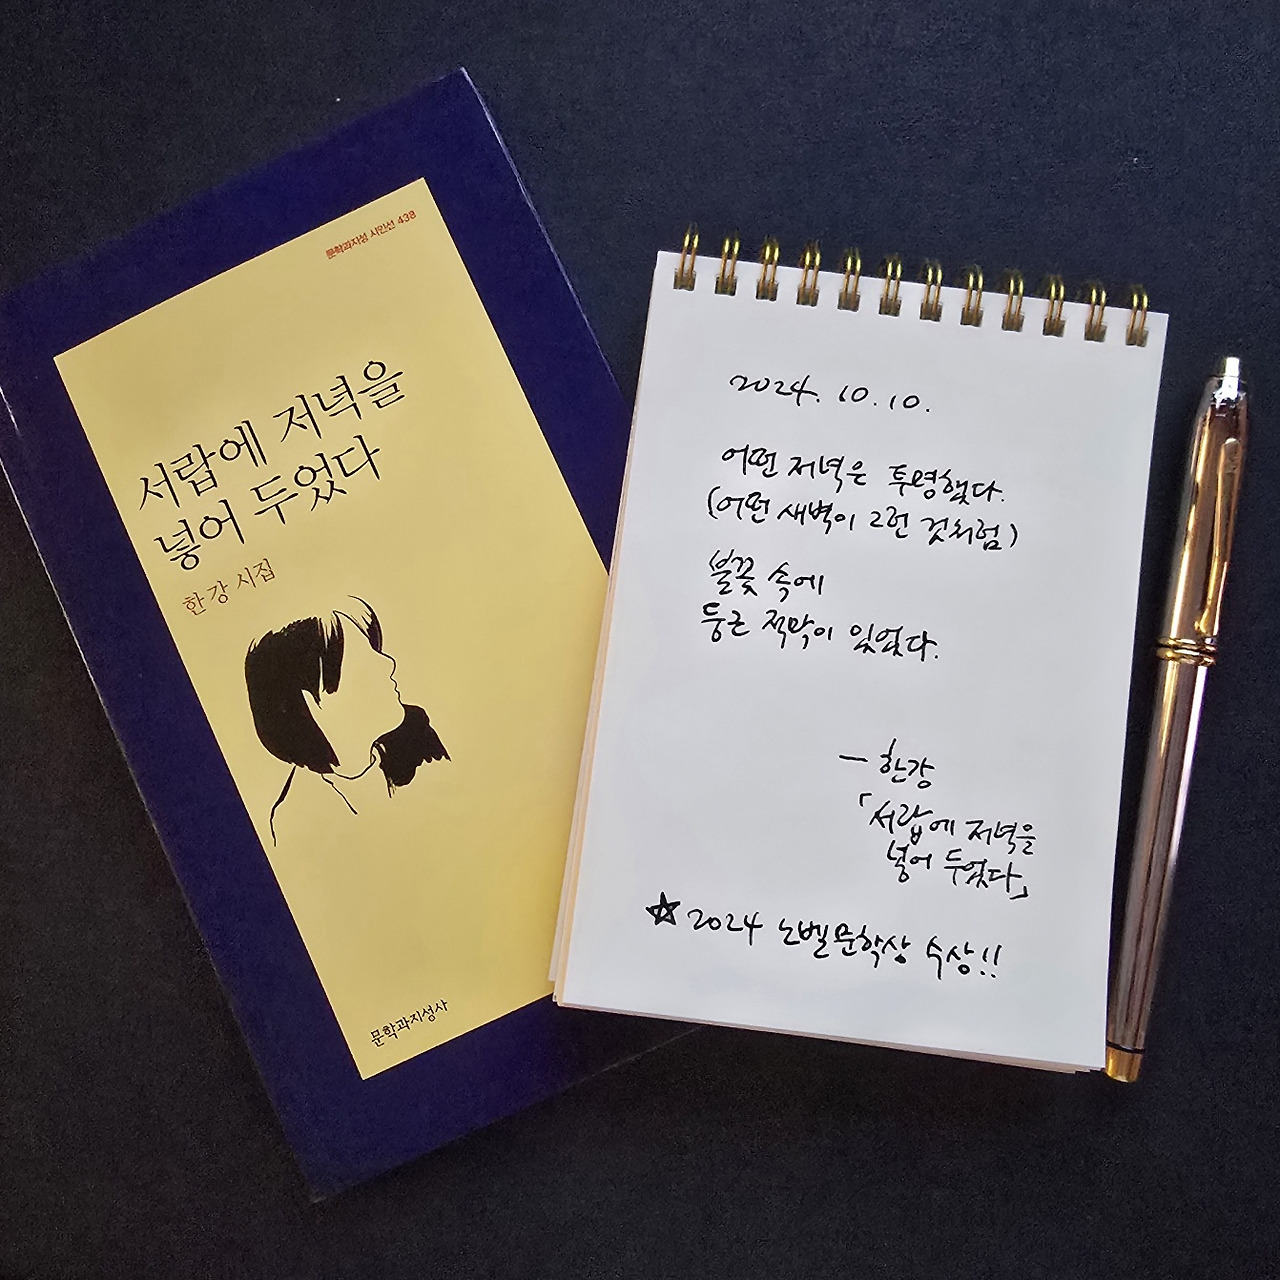 문학과지성 시인선 438
서랍에 저녁을
넣어 두었다
한강 시집
문학과지성사
2024. 10. 10.
어떤 저녁은 투명했다.
(어떤 새벽이 그런 것처럼)
불꽃 속에
둥근 적막이 있었다.
— 한강
「서랍에 저녁을
넣어 두었다」
☆ 2024 노벨문학상 수상!!